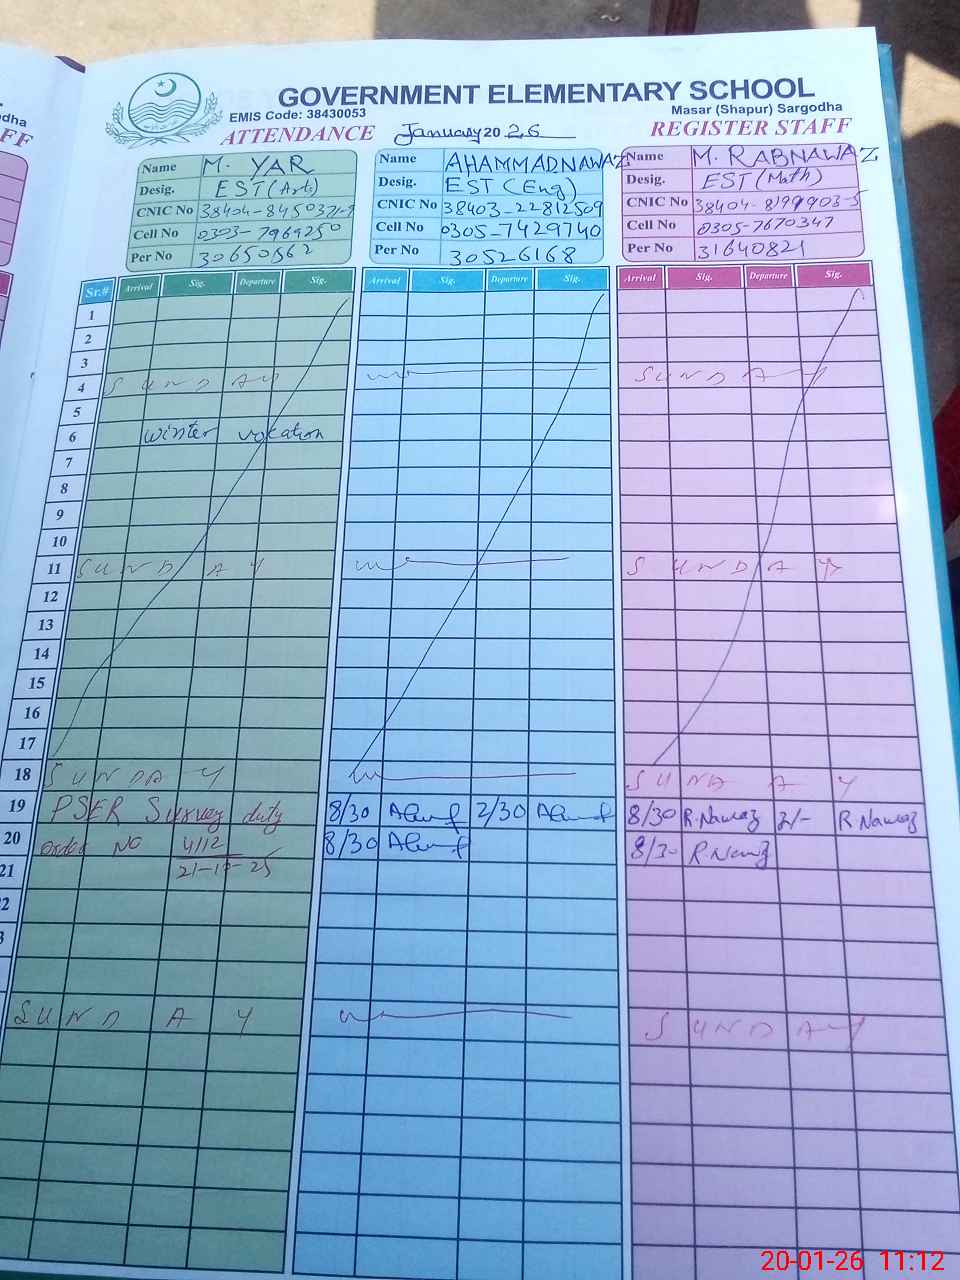 GOVERNMENT ELEMENTARY SCHOOL
EMIS Code: 38430053
Masar (Shapur) Sargodha
ATTENDANCE January 20 26 REGISTER STAFF
dha
FF
Name M. YAR
Desig. EST (Arts)
CNIC No
Cell No 0303-7969250
Per No 30650562
Name AHAMMADNAWAZ
Desig. EST (Eng)
CNIC No 38403-22812509
Cell No 0305-7429740
Per No 30526168
Name M. RABNAWAZ
Desig. EST (Math)
CNIC No
Cell No 0305-7670347
Per No 31640821
Sr.# Arrival Sig. Departure Sig. Arrival Sig. Departure Sig. Arrival Sig. Departure Sig.
1
2
3
4 SUNDAY SUNDAY
5
6 winter vacation
7
8
9
10
11 SUNDAY SUNDAY
12
13
14
15
16
17
18 SUNDAY SUNDAY
19 PSER Survey duty 8/30 2/30 8/30 R.Nawaz 2/- R.Nawaz
20 order No 4112 8/30 8/30 R.Nawaz
21
2
3
SUNDAY SUNDAY
20-01-26 11:12